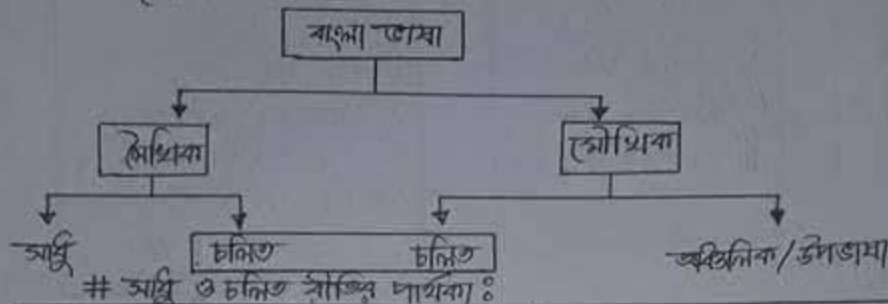 বাংলা ভাষা
লৈখিক মৌখিক
সাধু চলিত চলিত আঞ্চলিক/উপভাষা
# সাধু ও চলিত রীতির পার্থক্য: